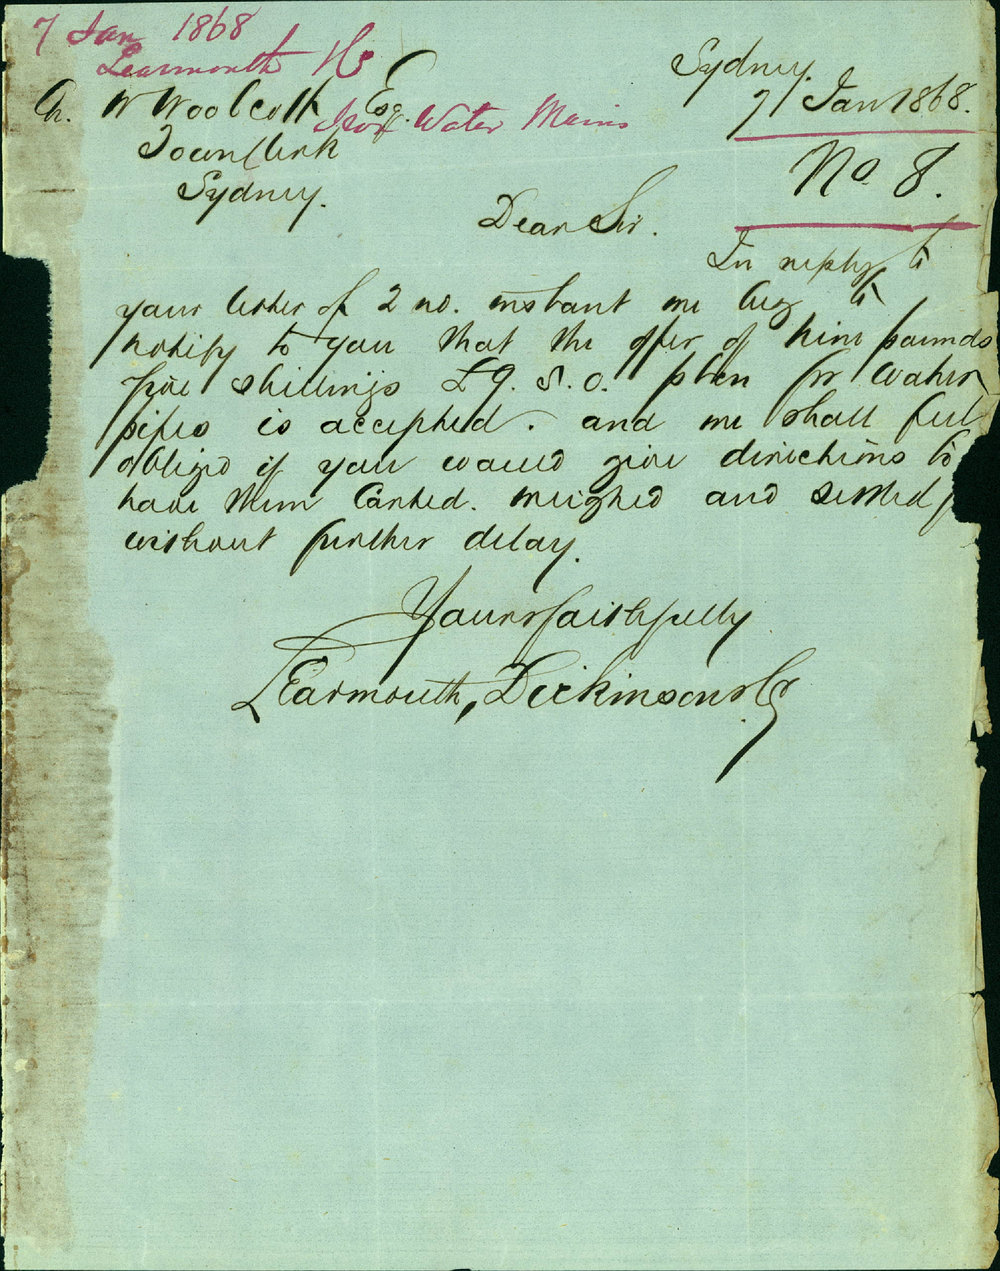 7 Jan 1868
Learmonth &c
Iron Water Mains
Sydney.
7 Jan 1868.
No. 8.
Ch. W Woolcott Esq.
Town Clerk
Sydney.
Dear Sir.
In reply to
your letter of 2 nd. instant we beg to
notify to you that the offer of nine pounds
five shillings £9. 5. 0. p ton for water
pipes is accepted. and we shall feel
obliged if you would give directions to
have them carted. weighed and settled
without further delay.
Yours faithfully
Learmouth, Dickinson & Co